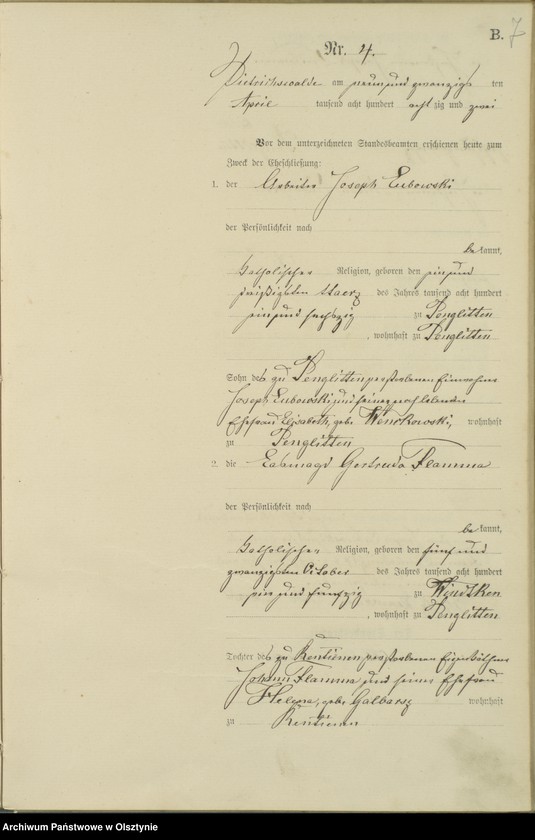 B. 7
Nr. 4.
Dietrichswalde am neun und zwanzigs ten
April tausend acht hundert acht zig und zwei
Vor dem unterzeichneten Standesbeamten erschienen heute zum
Zweck der Eheschließung:
1. der Arbeiter Joseph Lubowski
der Persönlichkeit nach
be kannt,
katholischer Religion, geboren den ein und
dreißigsten Maerz des Jahres tausend acht hundert
ein und sechszig zu Penglitten
, wohnhaft zu Penglitten
Sohn des zu Penglitten verstorbenen Einwohners
Joseph Lubowski und seiner noch lebenden
Ehefrau Elisabeth, geb. Wenckowski, wohnhaft
zu Penglitten
2. die Gertruda Flamma
der Persönlichkeit nach
be kannt,
katholischer Religion, geboren den fünf und
zwanzigsten October des Jahres tausend acht hundert
ein und fünfzig zu Windtken
, wohnhaft zu Penglitten
Tochter des zu Rentienen verstorbenen Eigenkäthner
Johann Flamma und seiner Ehefrau
Helena, geb. Galbarsz wohnhaft
zu Rentienen
Archiwum Państwowe w Olsztynie